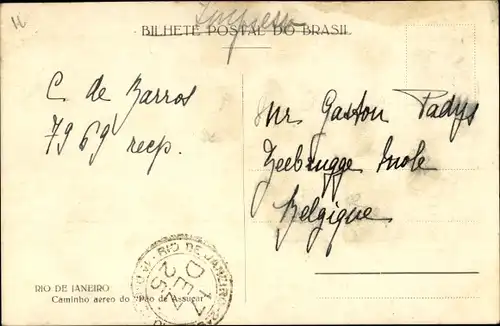 Impresso
BILHETE POSTAL DO BRASIL
C. de Barros
7969 recp.
Mr Gaston Padys
Zeebrugge Mole
Belgique
RIO DE JANEIRO
17
DEZ
25
RIO DE JANEIRO
Caminho aereo do "Pão de Assucar"